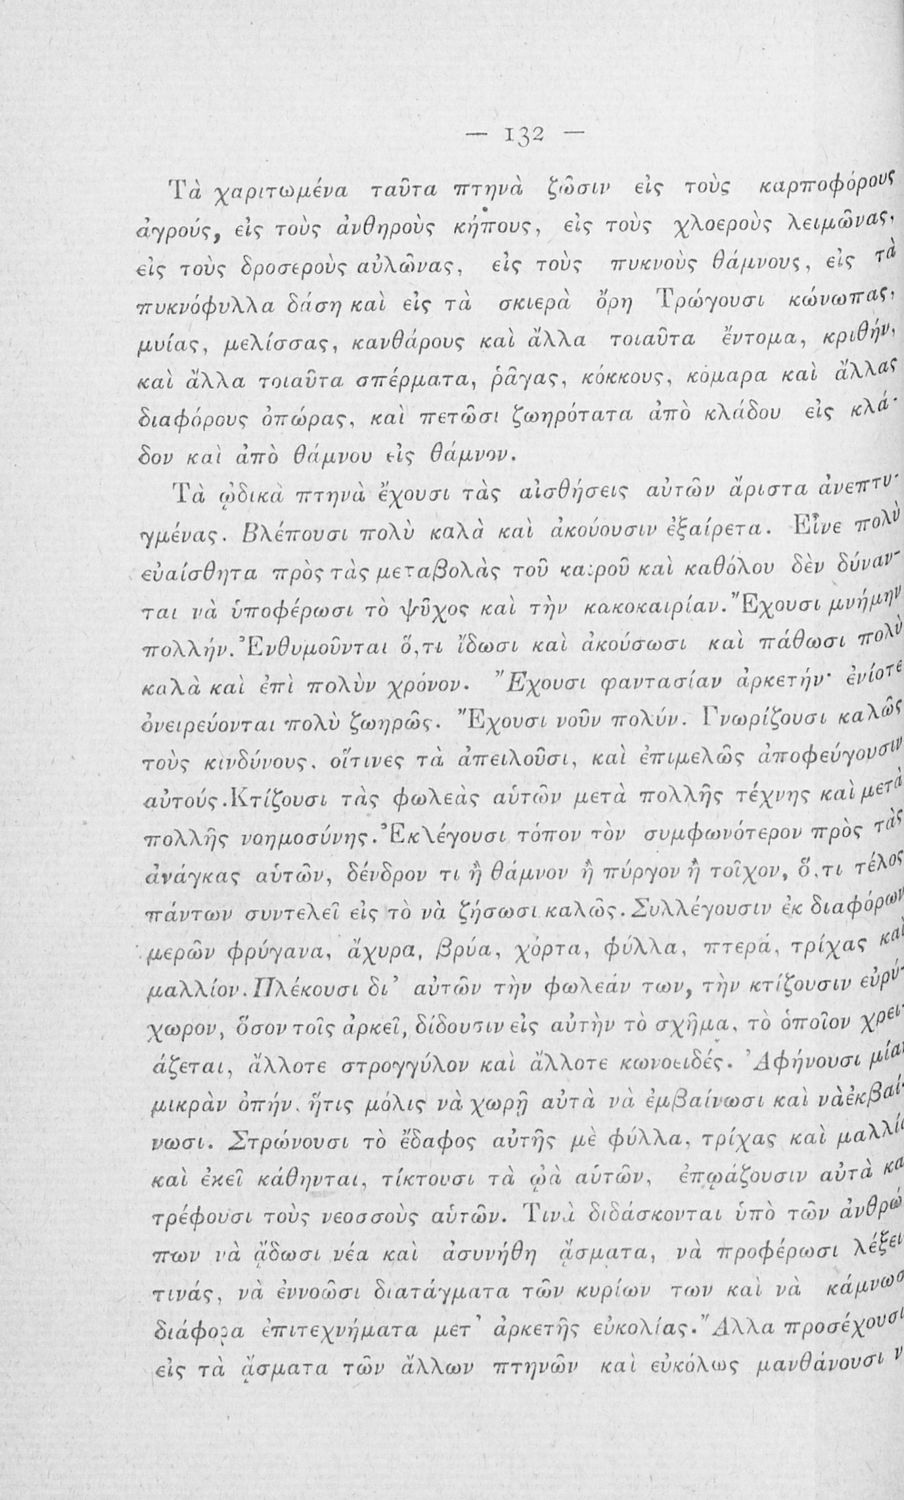 — 132 —
Τὰ χαριτωμένα ταῦτα πτηνὰ ζῶσιν εἰς τοὺς καρποφόρους
ἀγρούς, εἰς τοὺς ἀνθηροὺς κήπους, εἰς τοὺς χλοεροὺς λειμῶνας,
εἰς τοὺς δροσεροὺς αὐλῶνας, εἰς τοὺς πυκνοὺς θάμνους, εἰς τὰ
πυκνόφυλλα δάση καὶ εἰς τὰ σκιερὰ ὄρη Τρώγουσι κώνωπας,
μυίας, μελίσσας, κανθάρους καὶ ἄλλα τοιαῦτα ἔντομα, κριθήν,
καὶ ἄλλα τοιαῦτα σπέρματα, ῥᾶγας, κόκκους, κόμαρα καὶ ἄλλας
διαφόρους ὀπώρας, καὶ πετῶσι ζωηρότατα ἀπὸ κλάδου εἰς κλά-
δον καὶ ἀπὸ θάμνου εἰς θάμνον.
Τὰ ᾠδικὰ πτηνὰ ἔχουσι τὰς αἰσθήσεις αὐτῶν ἄριστα ἀνεπτυ-
γμένας. Βλέπουσι πολὺ καλὰ καὶ ἀκούουσιν ἐξαίρετα. Εἶνε πολὺ
εὐαίσθητα πρὸς τὰς μεταβολὰς τοῦ καιροῦ καὶ καθόλου δὲν δύναν-
ται νὰ ὑποφέρωσι τὸ ψῦχος καὶ τὴν κακοκαιρίαν. Ἔχουσι μνήμην
πολλήν. Ἐνθυμοῦνται ὅ,τι ἴδωσι καὶ ἀκούσωσι καὶ πάθωσι πολὺ
καλὰ καὶ ἐπὶ πολὺν χρόνον. Ἔχουσι φαντασίαν ἀρκετήν· ἐνίοτε
ὀνειρεύονται πολὺ ζωηρῶς. Ἔχουσι νοῦν πολύν. Γνωρίζουσι καλῶς
τοὺς κινδύνους, οἵτινες τὰ ἀπειλοῦσι, καὶ ἐπιμελῶς ἀποφεύγουσιν
αὐτούς. Κτίζουσι τὰς φωλεὰς αὑτῶν μετὰ πολλῆς τέχνης καὶ μετὰ
πολλῆς νοημοσύνης. Ἐκλέγουσι τόπον τὸν συμφωνότερον πρὸς τὰς
ἀνάγκας αὑτῶν, δένδρον τι ἢ θάμνον ἢ πύργον ἢ τοῖχον, ὅ,τι τέλος
πάντων συντελεῖ εἰς τὸ νὰ ζήσωσι καλῶς. Συλλέγουσιν ἐκ διαφόρων
μερῶν φρύγανα, ἄχυρα, βρύα, χόρτα, φύλλα, πτερά, τρίχας καὶ
μαλλίον. Πλέκουσι δι' αὐτῶν τὴν φωλεάν των, τὴν κτίζουσιν εὐρύ-
χωρον, ὅσον τοῖς ἀρκεῖ, δίδουσιν εἰς αὐτὴν τὸ σχῆμα, τὸ ὁποῖον χρει-
άζεται, ἄλλοτε στρογγύλον καὶ ἄλλοτε κωνοειδές. Ἀφήνουσι μίαν
μικρὰν ὀπήν, ἥτις μόλις νὰ χωρῇ αὐτὰ νὰ ἐμβαίνωσι καὶ νὰ ἐκβαί-
νωσι. Στρώνουσι τὸ ἔδαφος αὐτῆς μὲ φύλλα, τρίχας καὶ μαλλί
καὶ ἐκεῖ κάθηνται, τίκτουσι τὰ ᾠὰ αὑτῶν, ἐπῳάζουσιν αὐτὰ κα
τρέφουσι τοὺς νεοσσοὺς αὑτῶν. Τινὰ διδάσκονται ὑπὸ τῶν ἀνθρώ
πων νὰ ᾄδωσι νέα καὶ ἀσυνήθη ᾄσματα, νὰ προφέρωσι λέξει
τινάς, νὰ ἐννοῶσι διατάγματα τῶν κυρίων των καὶ νὰ κάμνωσ
διάφορα ἐπιτεχνήματα μετ' ἀρκετῆς εὐκολίας. Ἄλλα προσέχουσι
εἰς τὰ ᾄσματα τῶν ἄλλων πτηνῶν καὶ εὐκόλως μανθάνουσι ν